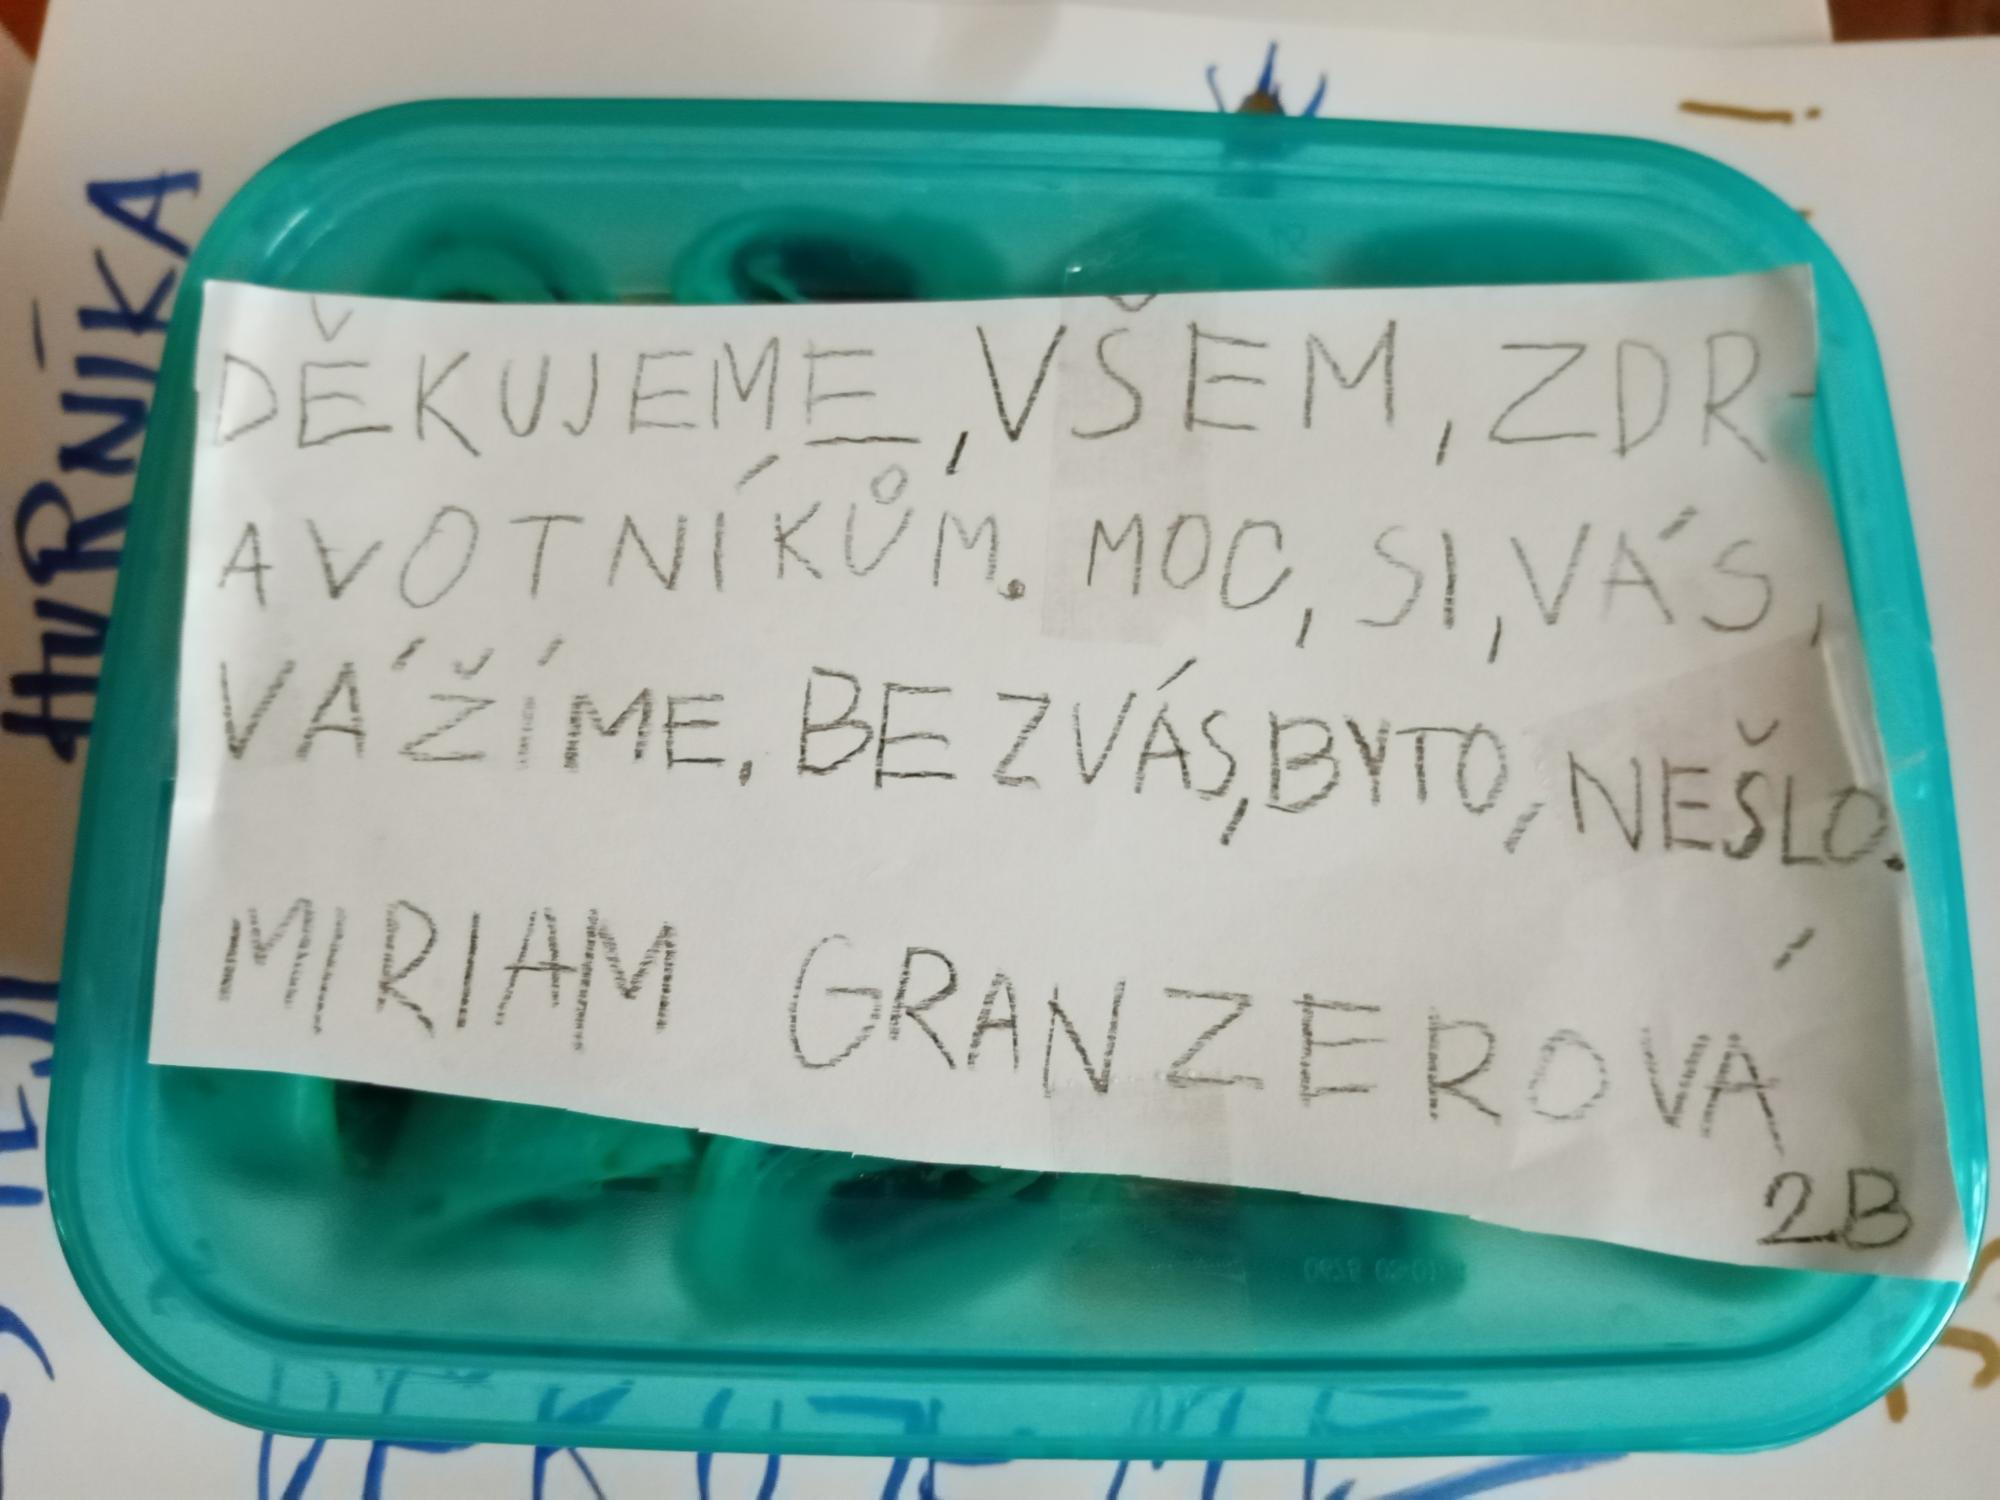 DĚKUJEME,VŠEM,ZDR-
AVOTNÍKŮM. MOC, SI,VÁS,
VÁŽÍME. BEZ VÁS,BYTO, NEŠLO.
MIRIAM GRANZEROVÁ
2.B
HURNÍKA
DĚKUJEME